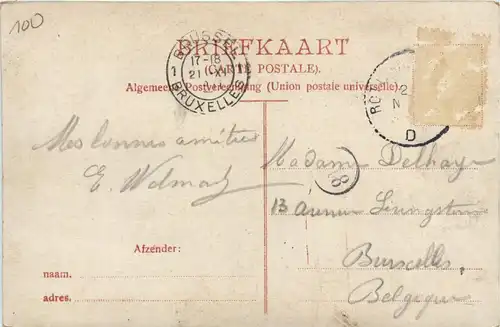 100
BRIEFKAART
(CARTE POSTALE).
Algemeene Postvereeniging (Union postale universelle).
BRUSSEL
1 17-18 1
21 XI
BRUXELLES
2
N
D
18
Mes bonnes amitiés
E.
Madame Delhaye
13 Avenue Livingstone
Burxelles,
Belgique
Afzender:
naam.
adres.